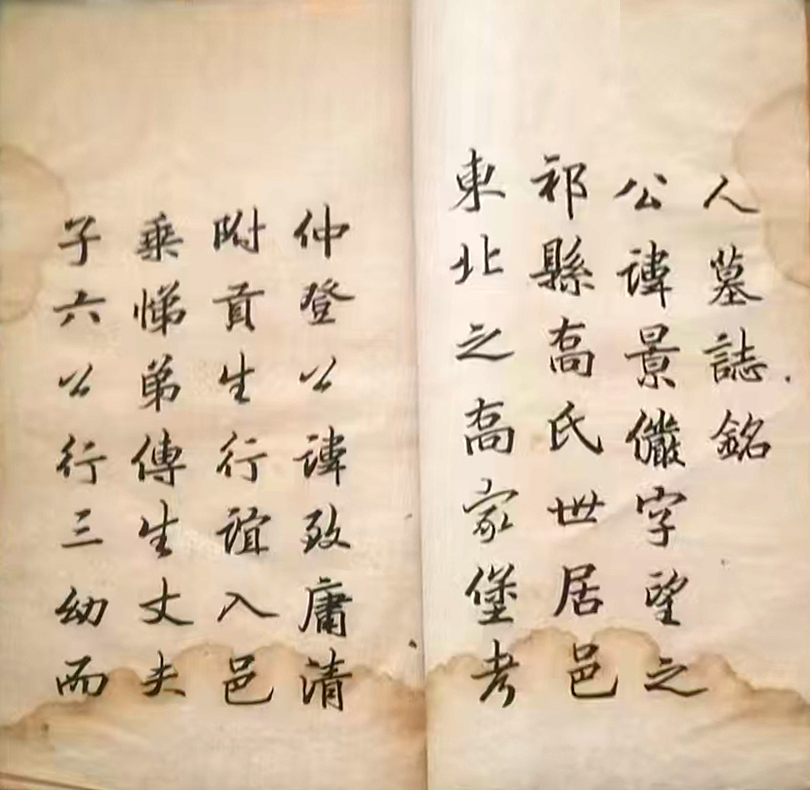 人墓誌銘
公諱景儼字望之
祁縣喬氏世居邑
東北之喬家堡考
仲登公諱致庸清
附貢生行誼入邑
乘悌弟傳生丈夫
子六公行三幼而